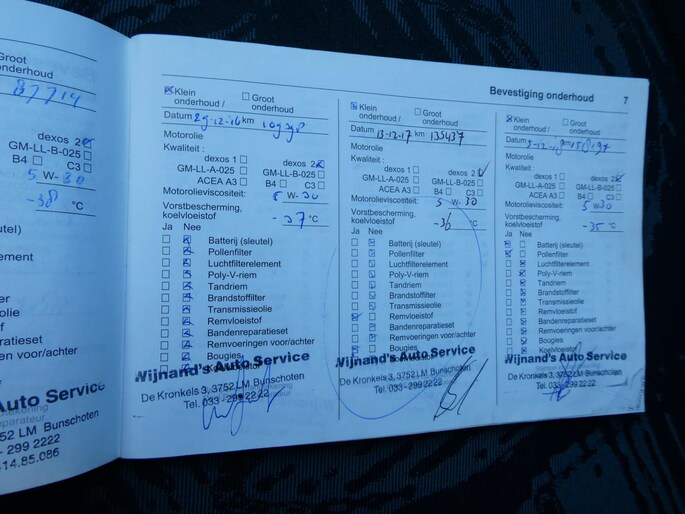 Groot
onderhoud
87714
dexos 2
GM-LL-B-025
B4 C3
5 W- 30
-38 °C
utel)
element
r
olie
f
aratieset
en voor/achter
Auto Service
3752 LM Bunschoten
- 299 2222
14.85.086
Bevestiging onderhoud 7
Klein onderhoud / Groot onderhoud
Datum 29-12-16 km
Motorolie
Kwaliteit :
dexos 1 dexos 2
GM-LL-A-025 GM-LL-B-025
ACEA A3 B4 C3
Motorolieviscositeit: 5 W- 30
Vorstbescherming,
koelvloeistof -37 °C
Ja Nee
Batterij (sleutel)
Pollenfilter
Luchtfilterelement
Poly-V-riem
Tandriem
Brandstoffilter
Transmissieolie
Remvloeistof
Bandenreparatieset
Remvoeringen voor/achter
Bougies
Koelvloeistof
Wijnand's Auto Service
De Kronkels 3, 3752 LM Bunschoten
Tel. 033 - 299 22 22
Klein onderhoud / Groot onderhoud
Datum 13-12-17 km 135437
Motorolie
Kwaliteit :
dexos 1 dexos 2
GM-LL-A-025 GM-LL-B-025
ACEA A3 B4 C3
Motorolieviscositeit: 5 W- 30
Vorstbescherming,
koelvloeistof -36 °C
Ja Nee
Batterij (sleutel)
Pollenfilter
Luchtfilterelement
Poly-V-riem
Tandriem
Brandstoffilter
Transmissieolie
Remvloeistof
Bandenreparatieset
Remvoeringen voor/achter
Bougies
Koelvloeistof
Wijnand's Auto Service
De Kronkels 3, 3752 LM Bunschoten
Tel. 033 - 299 22 22
Klein onderhoud / Groot onderhoud
Datum
Motorolie
Kwaliteit :
dexos 1 dexos 2
GM-LL-A-025 GM-LL-B-025
ACEA A3 B4 C3
Motorolieviscositeit: 5 W- 30
Vorstbescherming,
koelvloeistof -35 °C
Ja Nee
Batterij (sleutel)
Pollenfilter
Luchtfilterelement
Poly-V-riem
Tandriem
Brandstoffilter
Transmissieolie
Remvloeistof
Bandenreparatieset
Remvoeringen voor/achter
Bougies
Koelvloeistof
Wijnand's Auto Service
De Kronkels 3, 3752 LM Bunschoten
Tel. 033 - 299 22 22